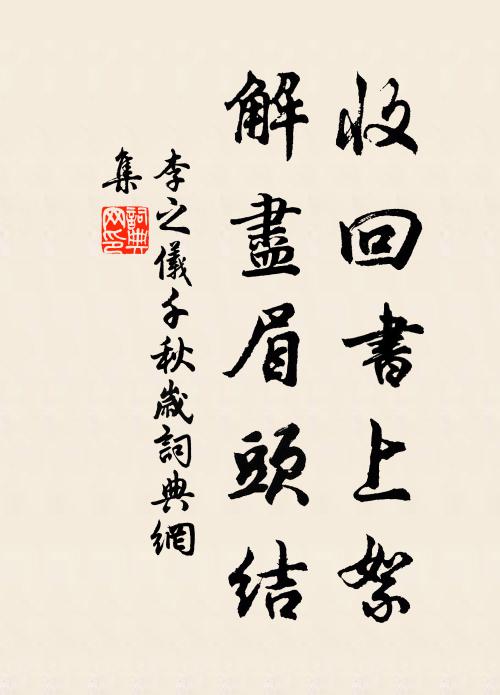 收回書上絮
解盡眉頭結
李之儀千秋歲詞典網
集
詞典網印